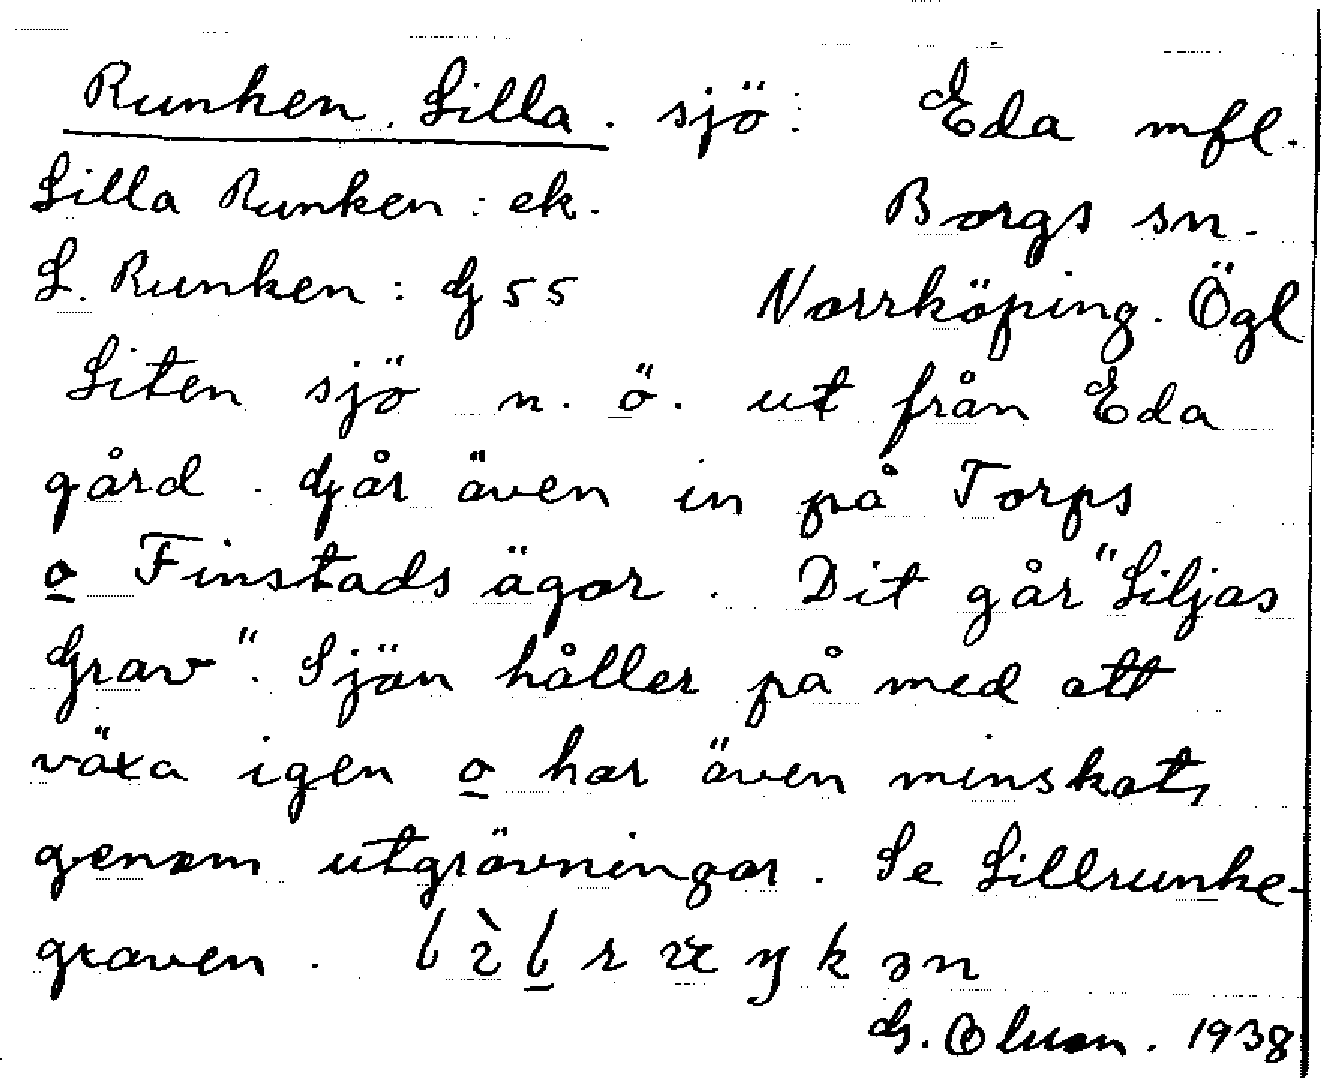 Runken, Lilla. sjö: Eda mfl.
Lilla Runken: ek. Borgs sn.
L. Runken: G 55 Norrköping. Ögl
Liten sjö n. ö. ut från Eda
gård. Går även in på Torps
o Finstads ägor. Dit går "Liljas
Grav". Sjön håller på med att
växa igen o har även minskat,
genom utgrävningar. Se Lillrunke-
graven.
G. Olson. 1938